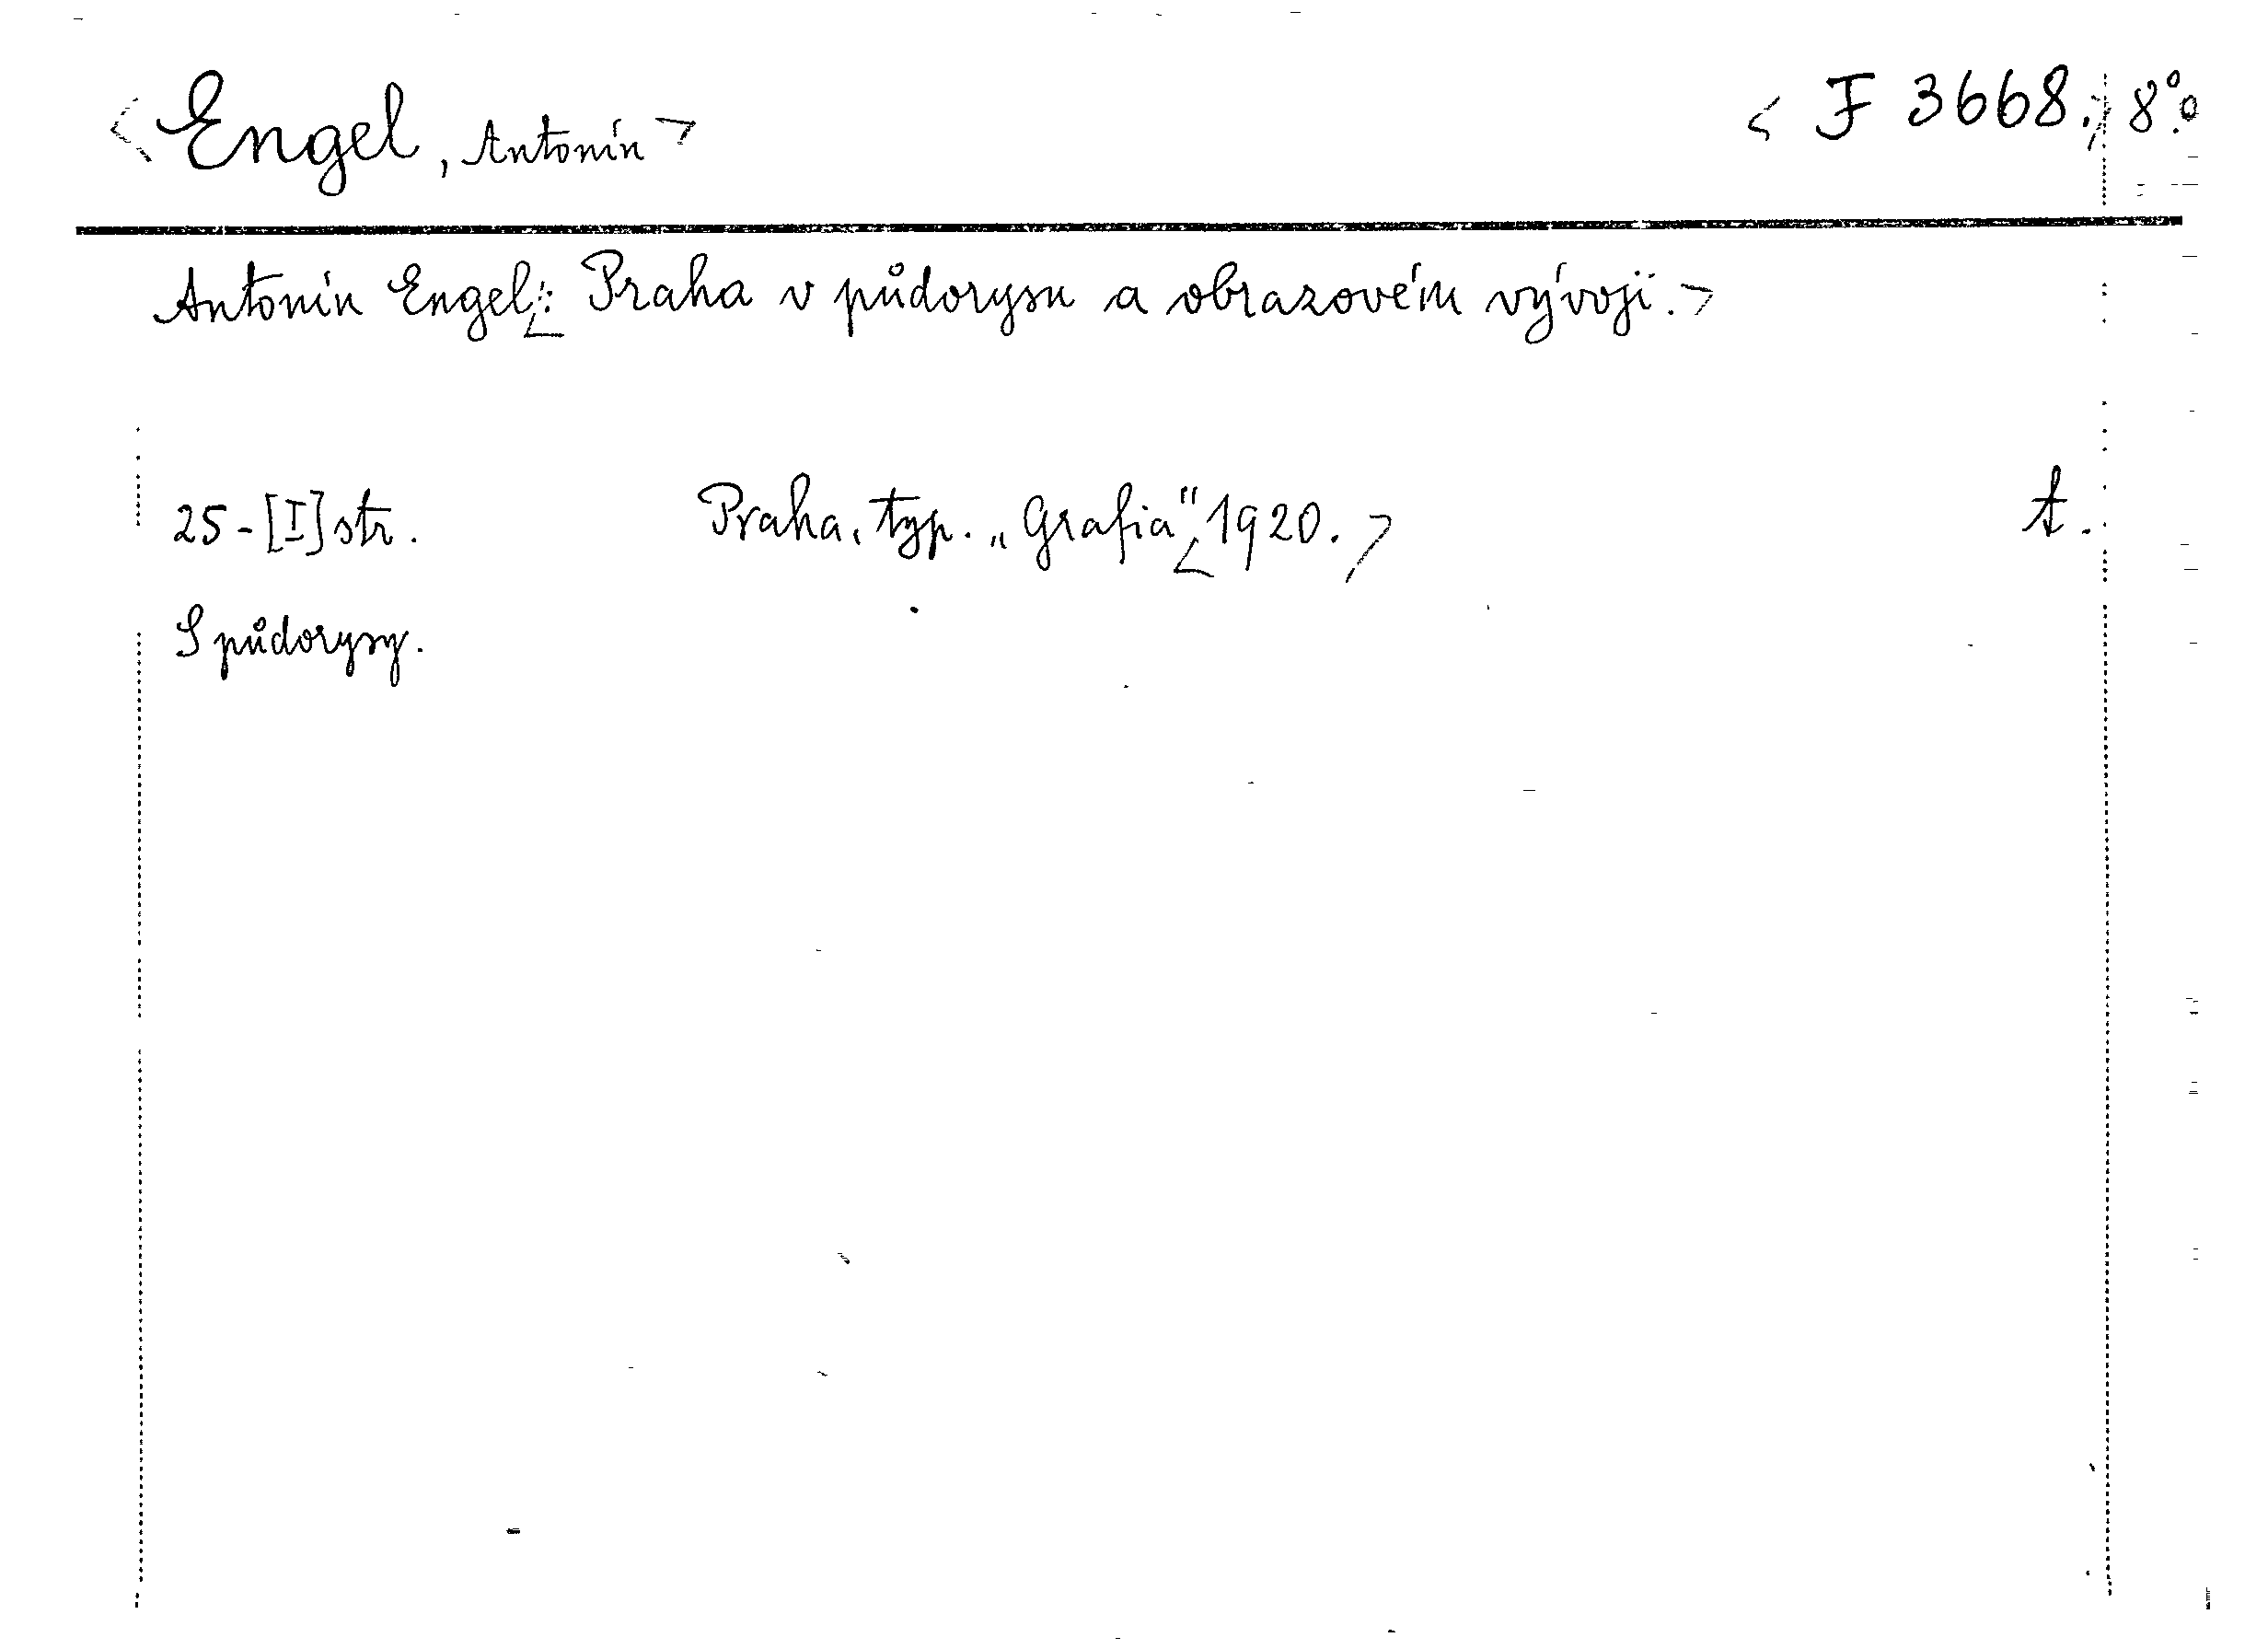 <Engel, Antonín> <F 3668.> 8°.
Antonín Engel: <Praha v půdorysu a obrazovém vývoji.>
25-[I] str. Praha, typ. „Grafia" <1920.> t.
S půdorysy.